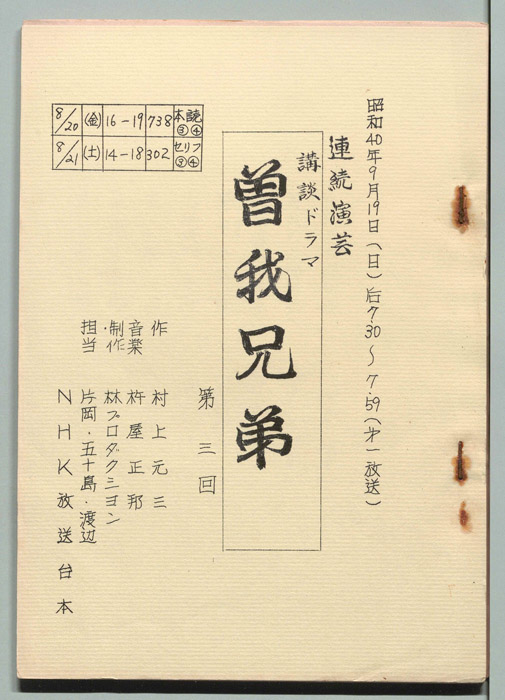 昭和40年9月19日(日)后7.30～7.59(才一放送)
連続演芸
講談ドラマ
曽我兄弟
第三回
作 村上元三
音楽 杵屋正邦
制作 林プロダクション
担当 片岡・五十島・渡辺
NHK放送台本
8/20 (金) 16-19 738 本読 ③④
8/21 (土) 14-18 302 セリフ ③④